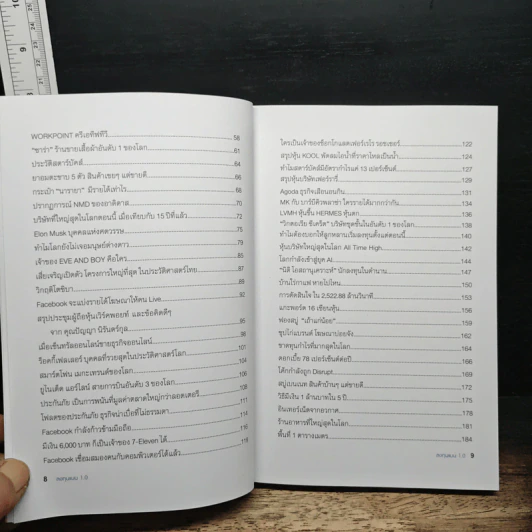 WORKPOINT ครีเอทีฟทีวี 56
"ซาร่า" ร้านขายเสื้อผ้าอันดับ 1 ของโลก 61
ประวัติสตาร์บัคส์ 64
ยาอมตะขาบ 5 ตัว สินค้าเชยๆ แต่ขายดี 66
กระเป๋า "นารายา" มีรายได้เท่าไร 68
ปรากฏการณ์ NMD ของอาดิดาส 70
บริษัทที่ใหญ่สุดในโลกตอนนี้ เมื่อเทียบกับ 15 ปีที่แล้ว 72
Elon Musk บุคคลแห่งศตวรรษ 75
ทำไมโลกยังไม่เจอมนุษย์ต่างดาว 79
เจ้าของ EVE AND BOY คือใคร 85
เสี่ยเจริญเปิดตัว โครงการใหญ่ที่สุด ในประวัติศาสตร์ไทย 87
วิกฤติโตชิบา 89
Facebook จะแบ่งรายได้โฆษณาให้คน Live 92
สรุปประชุมผู้ถือหุ้นเวิร์คพอยท์ และข้อคิดดีๆ
จาก คุณปัญญา นิรันดร์กุล 95
เมื่อเซ็นทรัลออนไลน์ขายธุรกิจออนไลน์ 98
ร็อคกี้เฟลเลอร์ บุคคลที่รวยสุดในประวัติศาสตร์โลก 101
สมาร์ตโฟน เมกะเทรนด์ของโลก 104
ยูไนเต็ด แอร์ไลน์ สายการบินอันดับ 3 ของโลก 106
ประกันภัย เป็นการพนันที่มูลค่าตลาดใหญ่กว่าลอตเตอรี่ 108
โฟลตของประกันภัย ธุรกิจน่าเบื่อที่ไม่ธรรมดา 111
Facebook กำลังก้าวข้ามมือถือ 114
มีเงิน 6,000 บาท ก็เป็นเจ้าของ 7-Eleven ได้ 116
Facebook เชื่อมสมองคนกับคอมพิวเตอร์ได้แล้ว 118
8 ลงทุนแมน 1.0
ใครเป็นเจ้าของช็อกโกแลตเฟอร์เรโร รอชเชอร์ 122
สรุปหุ้น KOOL พัดลมไอน้ำที่ราคาไหลเป็นน้ำ 124
ทำไมสตาร์บัคส์มีอัตรากำไรแค่ 13 เปอร์เซ็นต์ 127
สรุปหุ้นบริษัทเฟอร์รารี่ 129
Agoda ธุรกิจเสือนอนกิน 131
MK กับ บาร์บีคิวพลาซ่า ใครรายได้มากกว่ากัน 134
LVMH หุ้นขึ้น HERMES หุ้นตก 136
"วิกตอเรีย ซีเคร็ต" บริษัทชุดชั้นในอันดับ 1 ของโลก 138
ทำไมต้องบอกให้ลูกหลานเริ่มลงทุนตั้งแต่ตอนนี้ 140
หุ้นบริษัทใหญ่สุดในโลก All Time High 142
โลกกำลังเข้าสู่ยุค AI 144
"นิติ โอสถานุเคราะห์" นักลงทุนในตำนาน 147
บ้านไร่กาแฟ หายไปไหน 150
การตัดสินใจ ใน 2,522.88 ล้านวินาที 153
แกะพอร์ต 16 เซียนหุ้น 156
ฟองสบู่ "เถ้าแก่น้อย" 157
ซุปไก่แบรนด์ โฆษณาปลอดจัง 160
ขาดทุนกำไรที่มากสุดในโลก 164
ดอกเบี้ย 78 เปอร์เซ็นต์ต่อปี 166
โค้กกำลังถูก Disrupt 169
สบู่เบนเนท สินค้าบ้านๆ แต่ขายดี 172
วิธีมีเงิน 1 ล้านบาทใน 5 ปี 175
อินเทอร์เน็ตจากอวกาศ 178
ร้านอาหารที่ใหญ่สุดในโลก 181
พื้นที่ 1 ตารางเมตร 184
ลงทุนแมน 1.0 9